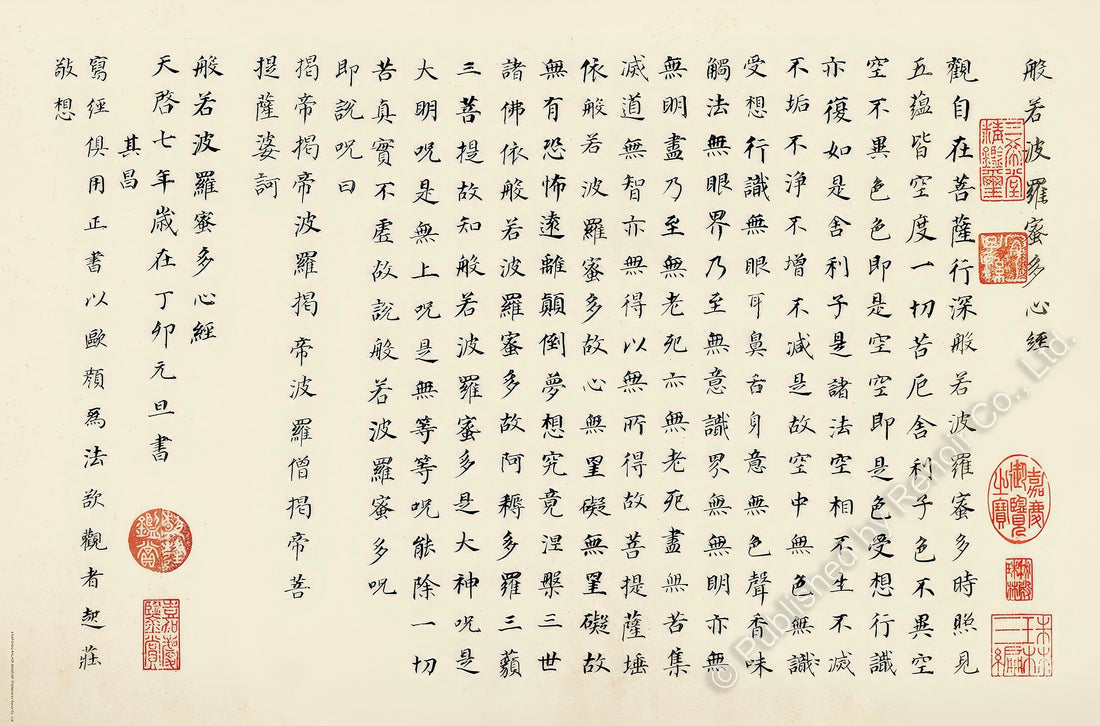 般若波羅蜜多心經
觀自在菩薩行深般若波羅蜜多時照見
五蘊皆空度一切苦厄舍利子色不異空
空不異色色即是空空即是色受想行識
亦復如是舍利子是諸法空相不生不滅
不垢不淨不增不减是故空中無色無識
受想行識無眼耳鼻舌身意無色聲香味
觸法無眼界乃至無意識界無無明亦無
無明盡乃至無老死亦無老死盡無苦集
滅道無智亦無得以無所得故菩提薩埵
依般若波羅蜜多故心無罣礙無罣礙故
無有恐怖遠離顛倒夢想究竟涅槃三世
諸佛依般若波羅蜜多故阿耨多羅三藐
三菩提故知般若波羅蜜多是大神呪是
大明呪是無上呪是無等等呪能除一切
苦真實不虛故說般若波羅蜜多呪
即說呪曰
揭帝揭帝波羅揭帝波羅僧揭帝菩
提薩婆訶
般若波羅蜜多心經
天啓七年歲在丁卯元旦書
其昌
寫經俱用正書以歐顏爲法欲觀者起莊
敬想
三希堂精鑑璽
嘉慶御覽之寶
乾隆鑑賞
嘉慶鑑賞
© Published by Renoir Co., Ltd.